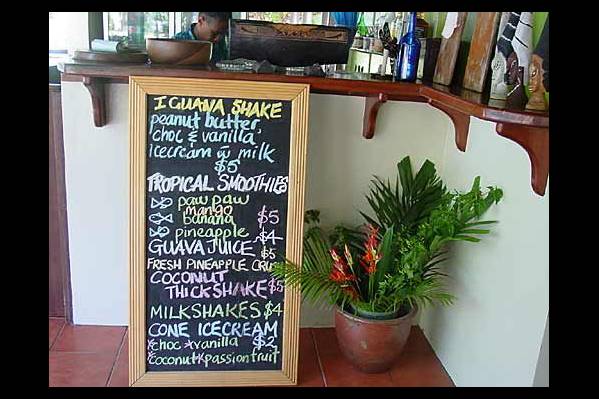 IGUANA SHAKE
peanut butter,
choc & vanilla
Icecream w milk
$5
TROPICAL SMOOTHIES
paw paw
mango
banana $5
pineapple $4
GUAVA JUICE $5
FRESH PINEAPPLE
COCONUT
THICKSHAKE $5
MILKSHAKES $4
CONE ICECREAM
choc vanilla $2
coconut passionfruit